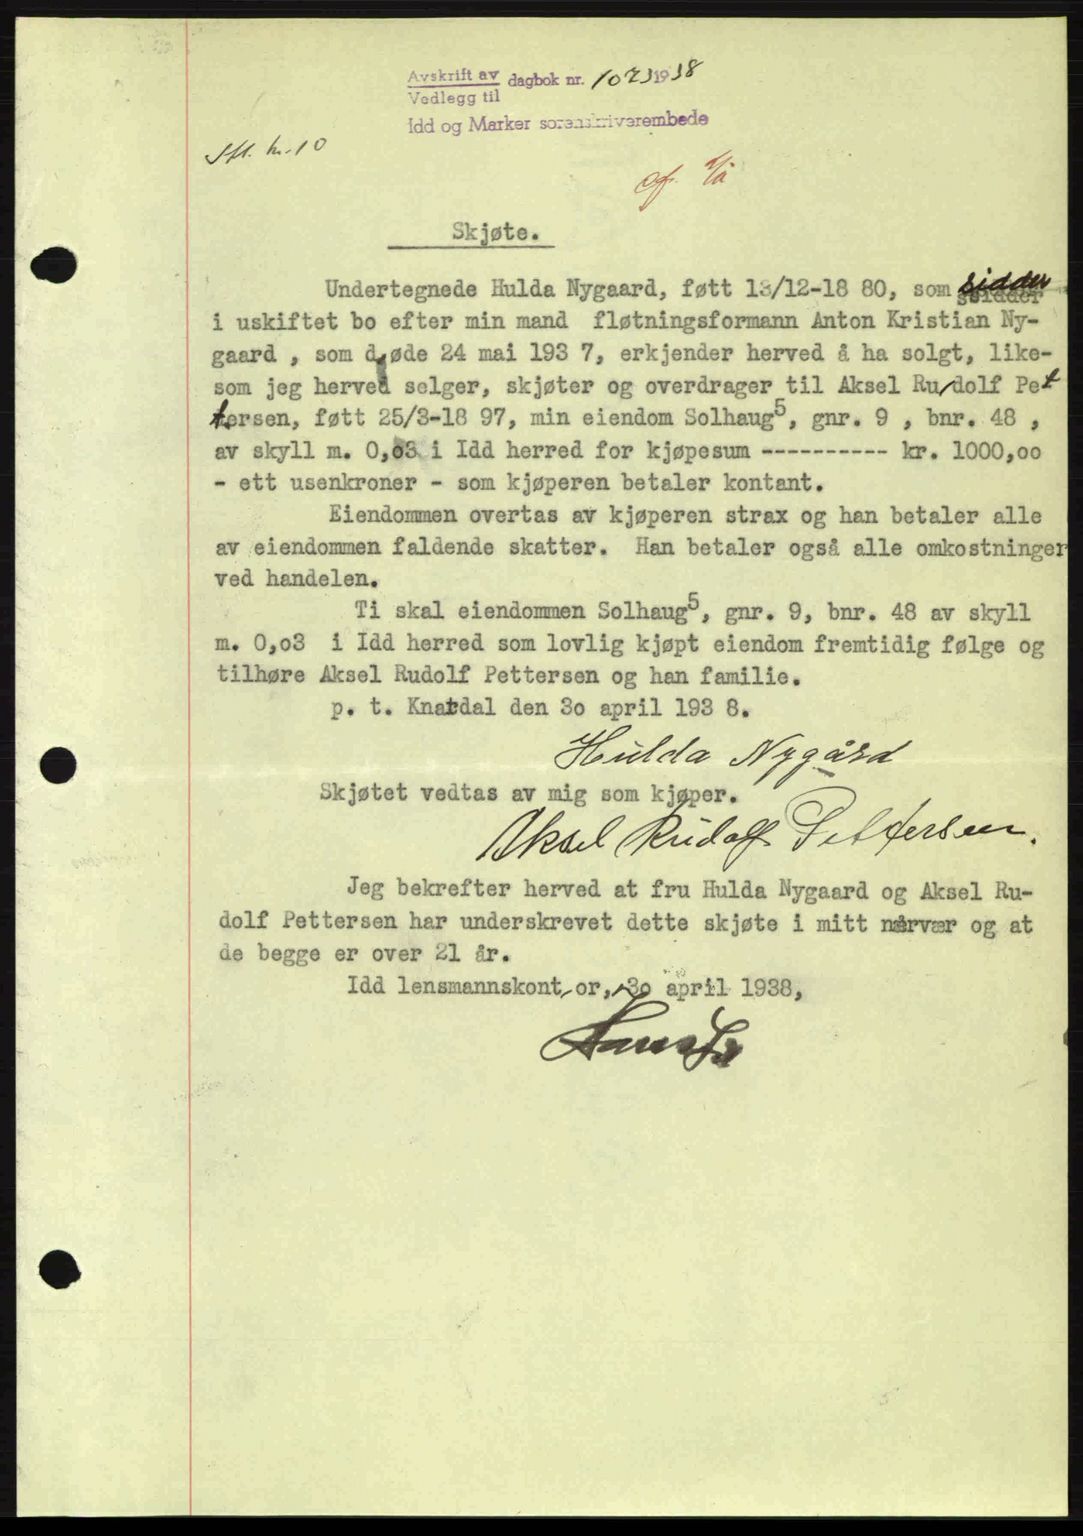 Avskrift av dagbok nr. 1073 1938
Vedlegg til
Idd og Marker sorenskriverembede
Skjøte.
Undertegnede Hulda Nygaard, føtt 13/12-18 80, som sidder
i uskiftet bo efter min mand fløtningsformann Anton Kristian Ny-
gaard , som døde 24 mai 193 7, erkjender herved å ha solgt, like-
som jeg herved selger, skjøter og overdrager til Aksel Rudolf Pet
tersen, føtt 25/3-18 97, min eiendom Solhaug5, gnr. 9 , bnr. 48 ,
av skyll m. 0,o3 i Idd herred for kjøpesum ---------- kr. 1000,oo
- ett usenkroner - som kjøperen betaler kontant.
Eiendommen overtas av kjøperen strax og han betaler alle
av eiendommen faldende skatter. Han betaler også alle omkostninger
ved handelen.
Ti skal eiendommen Solhaug5, gnr. 9, bnr. 48 av skyll
m. 0,o3 i Idd herred som lovlig kjøpt eiendom fremtidig følge og
tilhøre Aksel Rudolf Pettersen og han familie.
p. t. Knardal den 3o april 193 8.
Hulda Nygård
Skjøtet vedtas av mig som kjøper.
Aksel Rudolf Pettersen.
Jeg bekrefter herved at fru Hulda Nygaard og Aksel Ru-
dolf Pettersen har underskrevet dette skjøte i mitt nærvær og at
de begge er over 21 år.
Idd lensmannskontor, 3o april 1938,